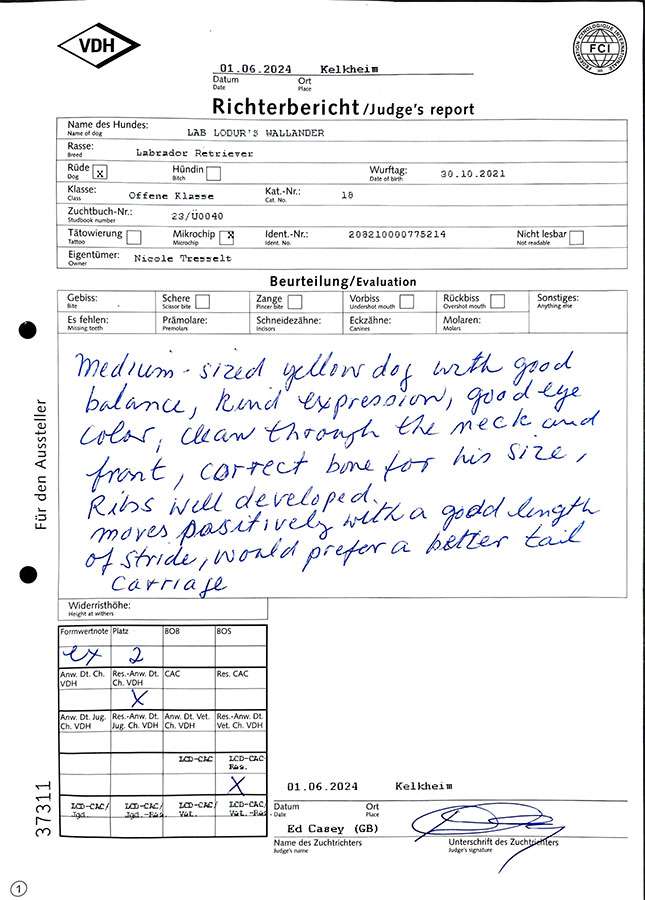 VDH
FEDERATION CYNOLOGIQUE INTERNATIONALE
FCI
01.06.2024 Kelkheim
Datum Ort
Date Place
Richterbericht/Judge's report
Name des Hundes: LAB LODUR'S WALLANDER
Name of dog
Rasse: Labrador Retriever
Breed
Rüde X Hündin Wurftag: 30.10.2021
Dog Bitch Date of birth
Klasse: Offene Klasse Kat.-Nr.: 18
Class Cat. No.
Zuchtbuch-Nr.: 23/U0040
Studbook number
Tätowierung Mikrochip X Ident.-Nr.: 208210000775214 Nicht lesbar
Tattoo Microchip Ident. No. Not readable
Eigentümer: Nicole Tresselt
Owner
Beurteilung/Evaluation
Gebiss: Schere Zange Vorbiss Rückbiss Sonstiges:
Bite Scissor bite Pincer bite Undershot mouth Overshot mouth Anything else
Es fehlen: Prämolare: Schneidezähne: Eckzähne: Molaren:
Missing teeth Premolars Incisors Canines Molars
Medium-sized yellow dog with good
balance, kind expression, good eye
color, clean through the neck and
front, correct bone for his size,
Ribs well developed.
moves positively with a good length
of stride, would prefer a better tail
carriage
Für den Aussteller
Widerristhöhe:
Height at withers
Formwertnote Platz BOB BOS
ex 2
Anw. Dt. Ch. VDH Res.-Anw. Dt. Ch. VDH CAC Res. CAC
X
Anw. Dt. Jug. Ch. VDH Res.-Anw. Dt. Jug. Ch. VDH Anw. Dt. Vet. Ch. VDH Res.-Anw. Dt. Vet. Ch. VDH
LCD-CAC LCD-CAC-Res.
X
LCD-CAC/Jgd. LCD-CAC/Jgd.-Res. LCD-CAC/Vet. LCD-CAC/Vet.-Res.
37311
01.06.2024 Kelkheim
Datum Ort
Date Place
Ed Casey (GB)
Name des Zuchtrichters Unterschrift des Zuchtrichters
Judge's name Judge's signature
1